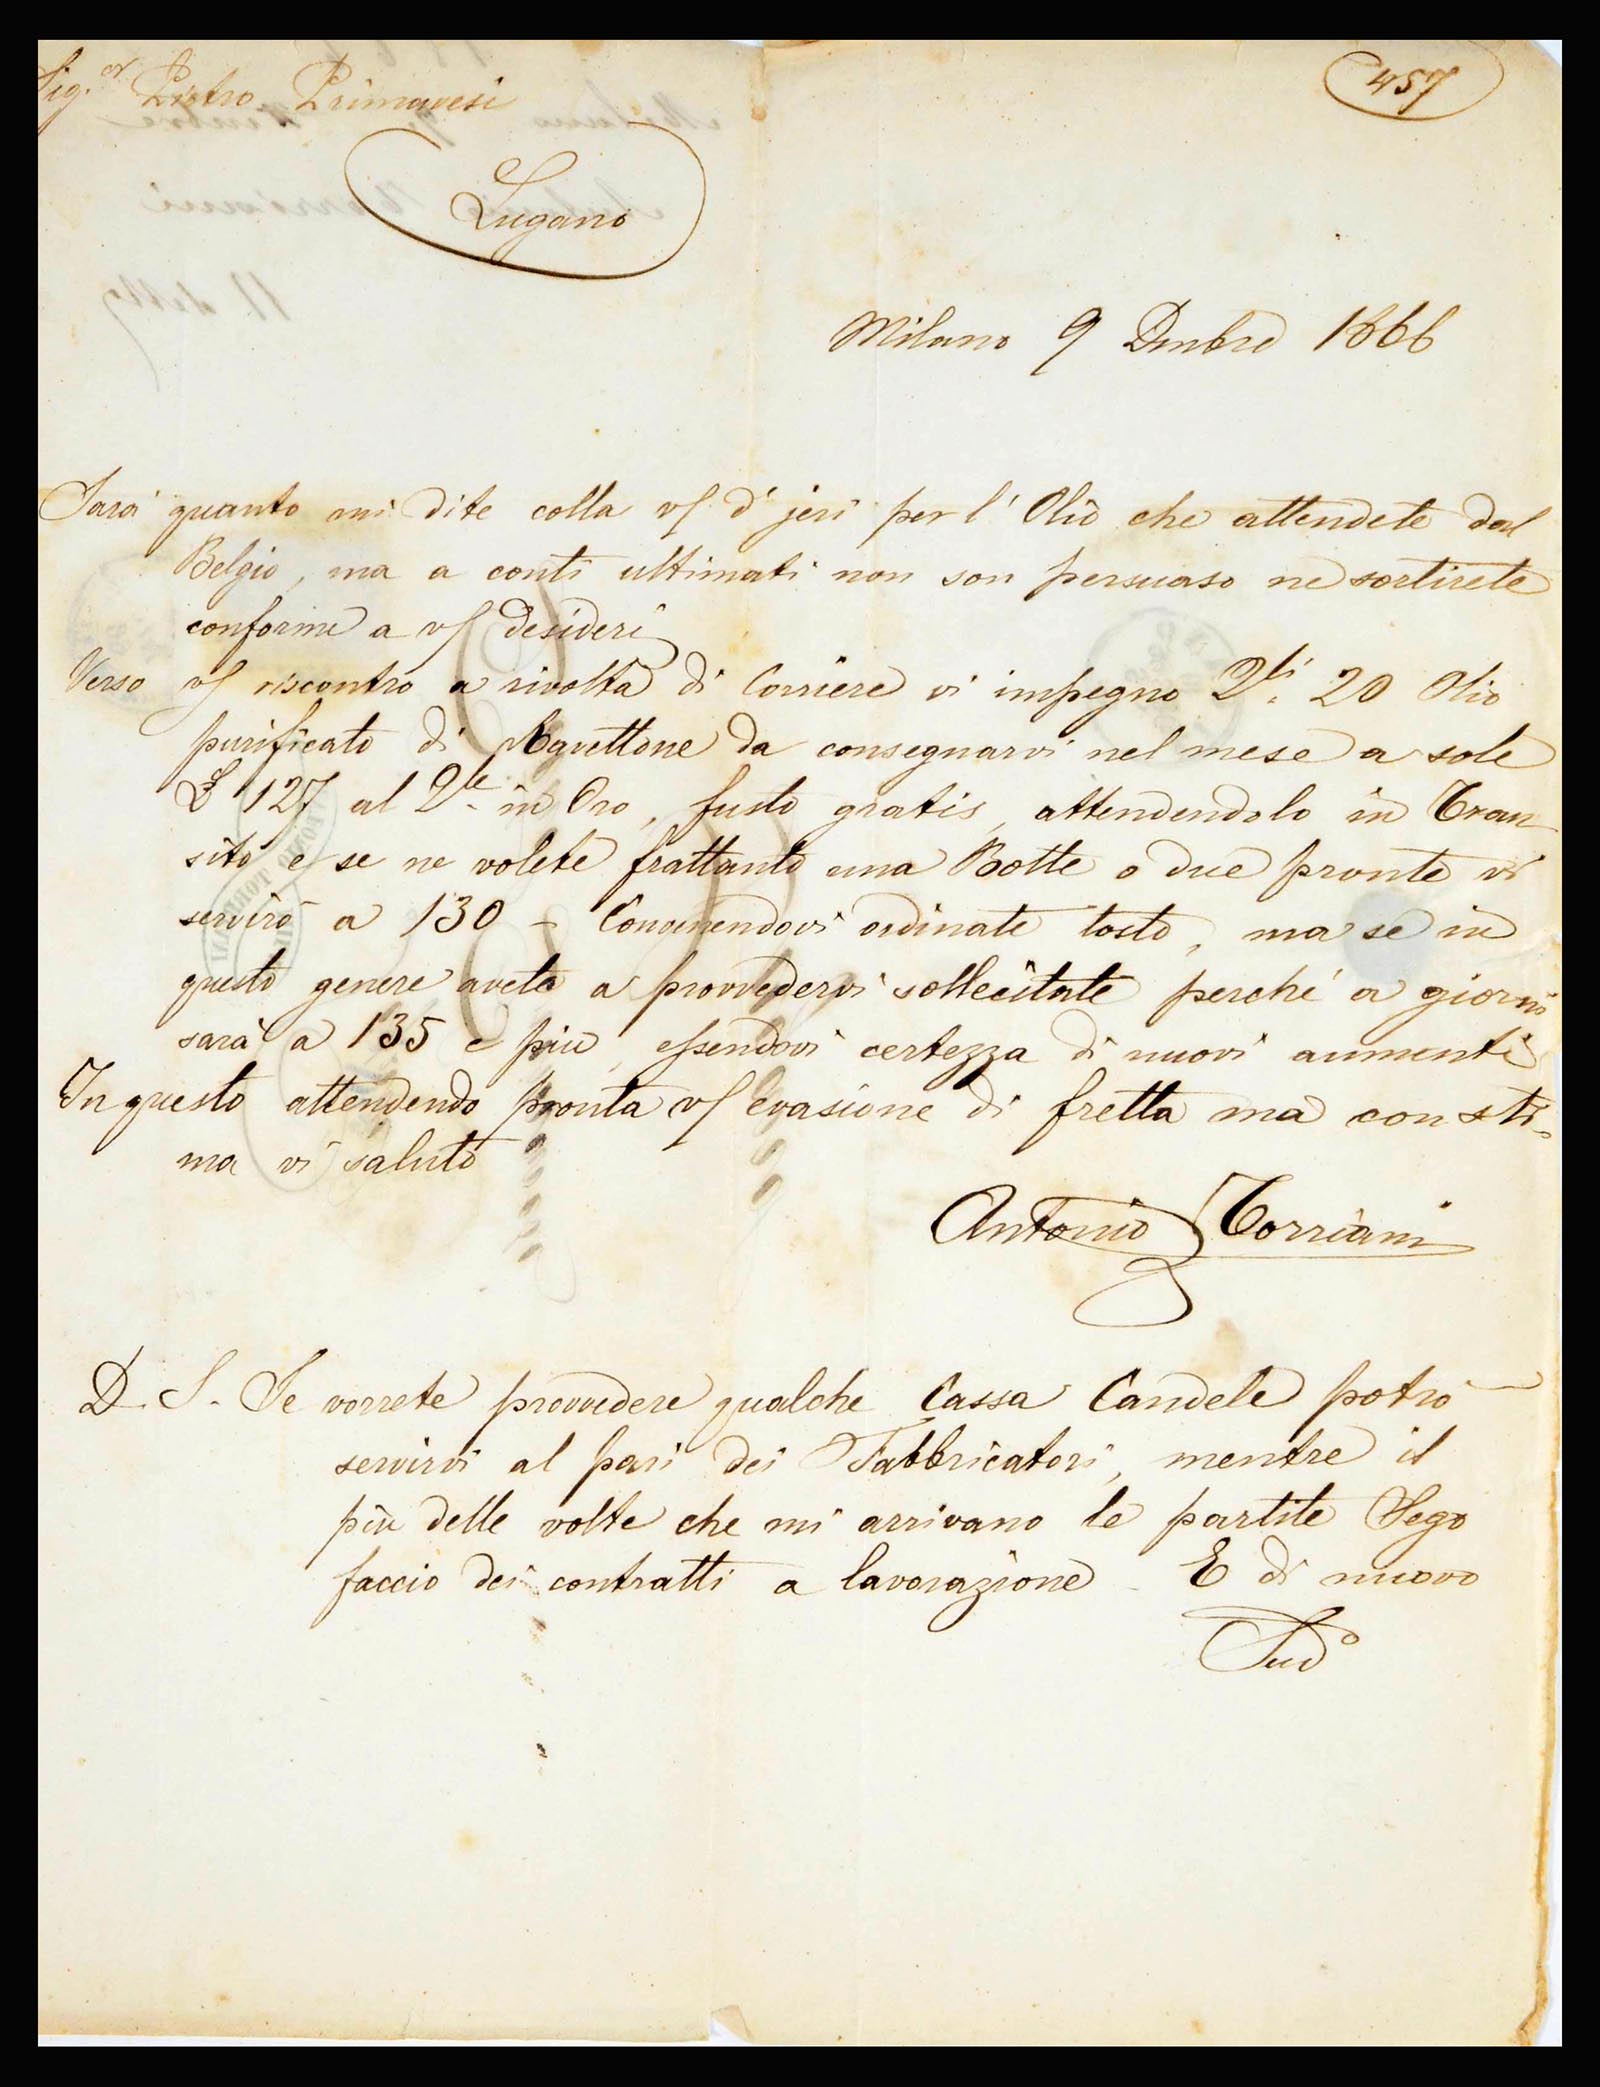 457
Sig.or Pietro Primavesi
Lugano
Milano 9 Dmbre 1866
Sarà quanto mi dite colla vs d' jeri per l' Olio che attendete dal
Belgio, ma a conti ultimati non son persuaso ne sortirete
conforme a vs desideri
Verso vs riscontro a rivolta di Corriere vi impegno Qli. 20 Olio
purificato di Ravettone da consegnarvi nel mese a sole
£ 127 al Qle in Oro, fusto gratis, attendendolo in Tran
sito e se ne volete frattanto una Botte o due pronte vi
servirò a 130 - Convenendovi ordinate tosto, ma se in
questo genere avete a provvedervi sollecitate perché a giorni
sarà a 135 e più, essendovi certezza di nuovi aumenti
In questo attendendo pronta vs evasione di fretta ma con sti-
ma vi saluto
Antonio Torriani
D. S. Se vorrete provvedere qualche Cassa Candele potrò
servirvi al pari dei Fabbricatori, mentre il
più delle volte che mi arrivano le partite Sego
faccio dei contratti a lavorazione - E di nuovo